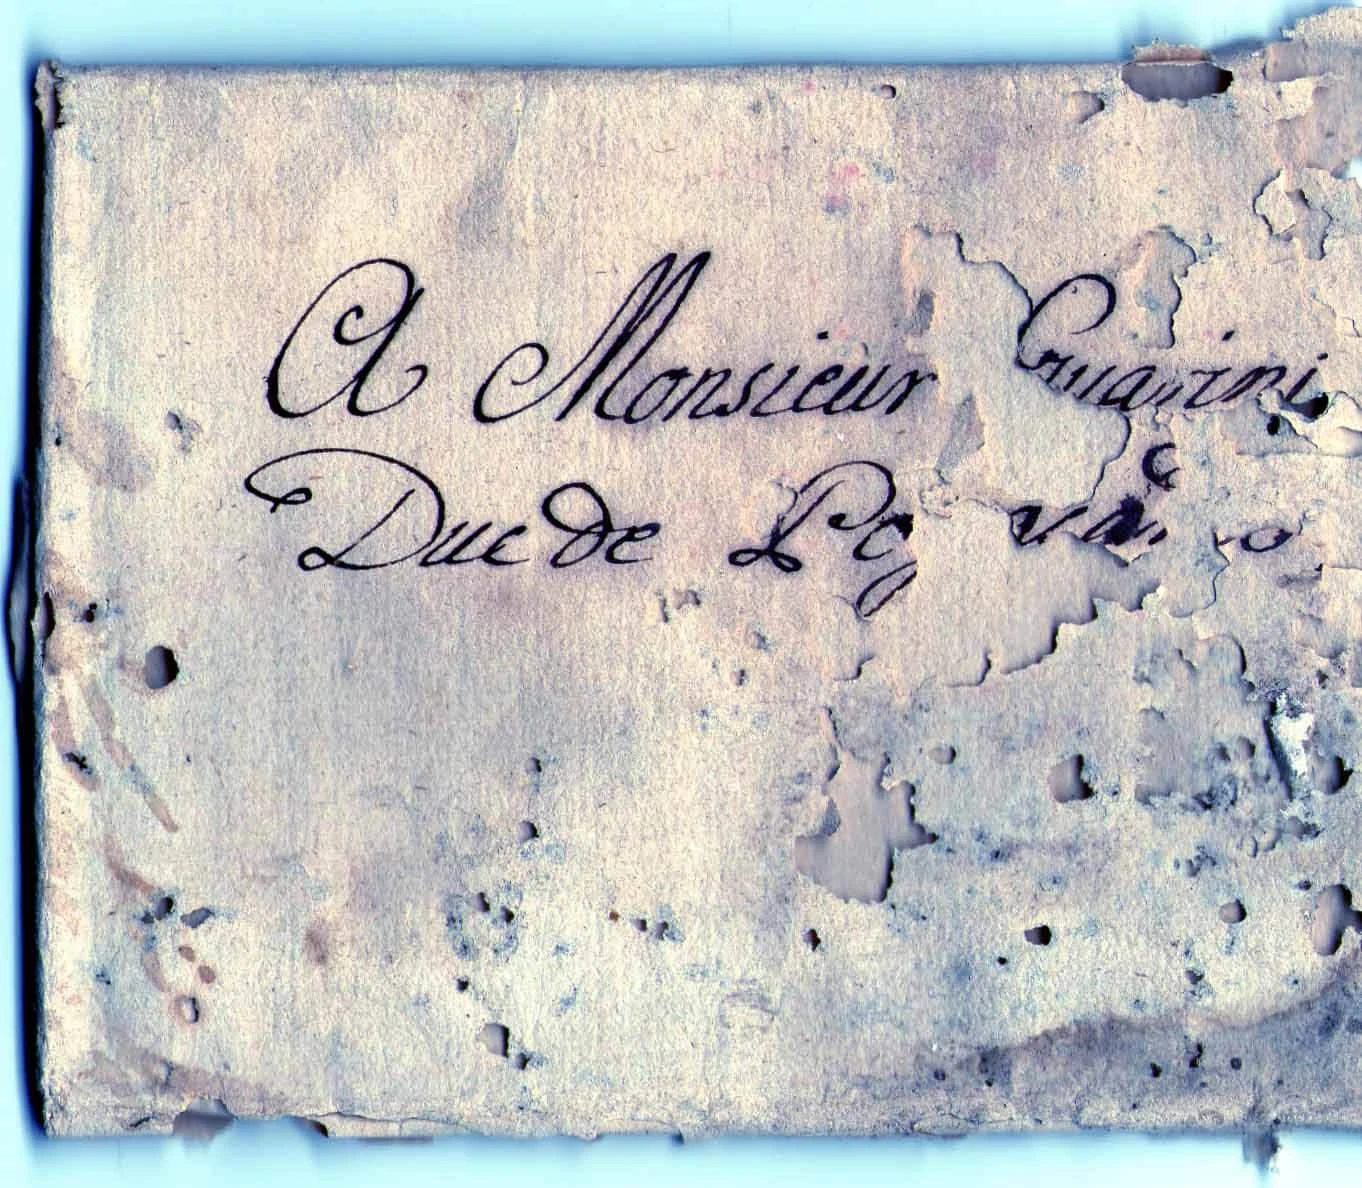 A Monsieur Guarini
Duc de